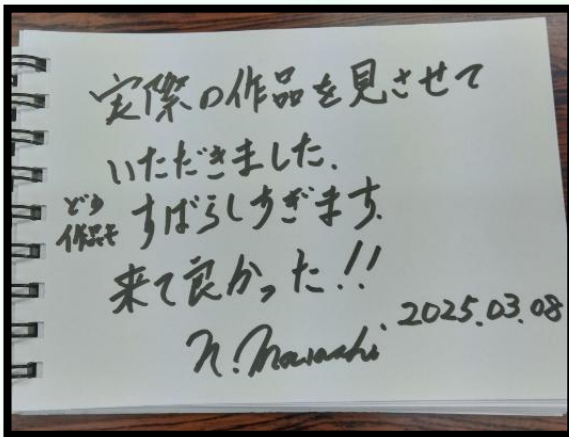 実際の作品を見させて
いただきました.
どの
作品も
すばらしすぎます.
来て良かった!!
2025.03.08
N.